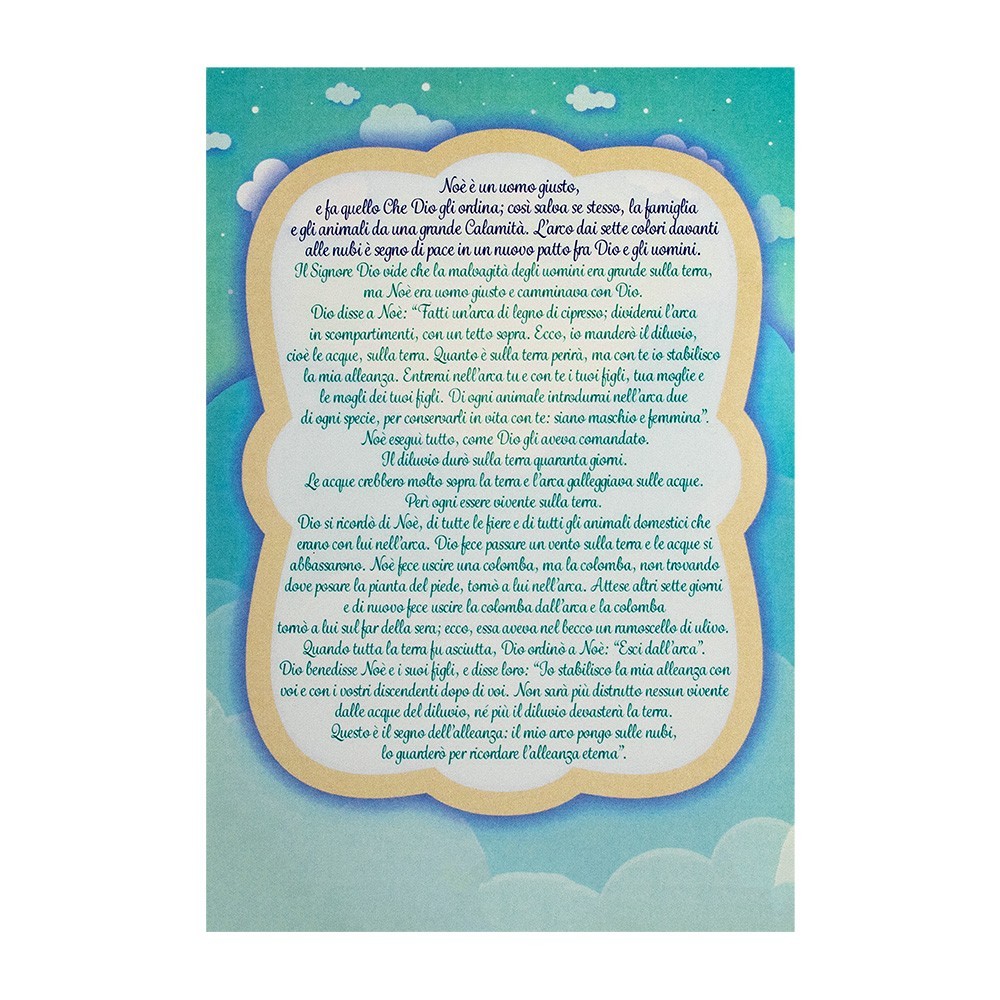 Noè è un uomo giusto,
e fa quello Che Dio gli ordina; così salva se stesso, la famiglia
e gli animali da una grande Calamità. L'arco dai sette colori davanti
alle nubi è segno di pace in un nuovo patto fra Dio e gli uomini.
Il Signore Dio vide che la malvagità degli uomini era grande sulla terra,
ma Noè era uomo giusto e camminava con Dio.
Dio disse a Noè: “Fatti un'arca di legno di cipresso; dividerai l'arca
in scompartimenti, con un tetto sopra. Ecco, io manderò il diluvio,
cioè le acque, sulla terra. Quanto è sulla terra perirà, ma con te io stabilisco
la mia alleanza. Entrerai nell'arca tu e con te i tuoi figli, tua moglie e
le mogli dei tuoi figli. Di ogni animale introdurrai nell'arca due
di ogni specie, per conservarli in vita con te: siano maschio e femmina”.
Noè eseguì tutto, come Dio gli aveva comandato.
Il diluvio durò sulla terra quaranta giorni.
Le acque crebbero molto sopra la terra e l'arca galleggiava sulle acque.
Perì ogni essere vivente sulla terra.
Dio si ricordò di Noè, di tutte le fiere e di tutti gli animali domestici che
erano con lui nell'arca. Dio fece passare un vento sulla terra e le acque si
abbassarono. Noè fece uscire una colomba, ma la colomba, non trovando
dove posare la pianta del piede, tornò a lui nell'arca. Attese altri sette giorni
e di nuovo fece uscire la colomba dall'arca e la colomba
tornò a lui sul far della sera; ecco, essa aveva nel becco un ramoscello di ulivo.
Quando tutta la terra fu asciutta, Dio ordinò a Noè: “Esci dall'arca”.
Dio benedisse Noè e i suoi figli, e disse loro: “Io stabilisco la mia alleanza con
voi e con i vostri discendenti dopo di voi. Non sarà più distrutto nessun vivente
dalle acque del diluvio, né più il diluvio devasterà la terra.
Questo è il segno dell'alleanza: il mio arco pongo sulle nubi,
lo guarderò per ricordare l'alleanza eterna”.